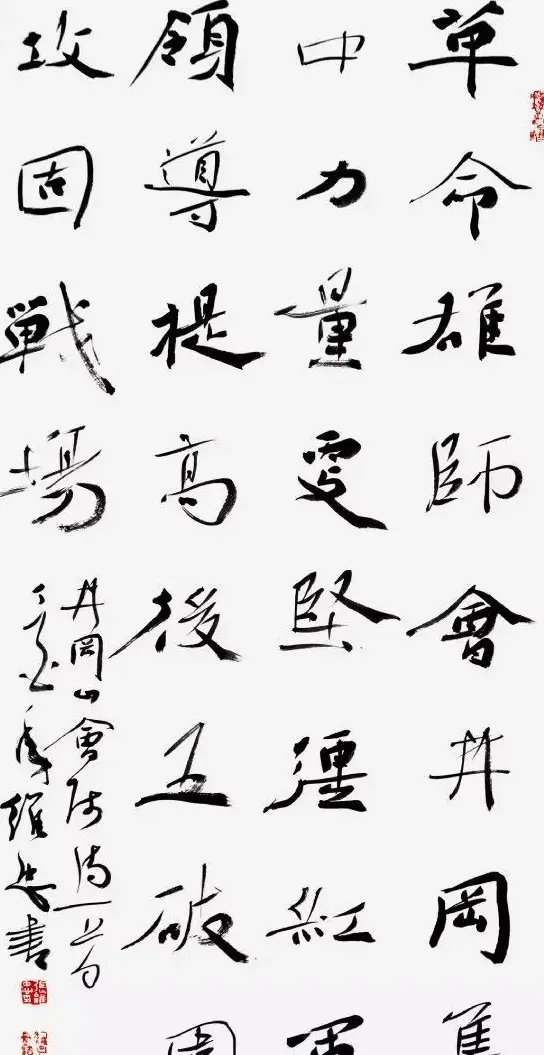 革命雄師會井岡集
中力量更堅彊紅軍
領導提高後五破圍
攻固戰場
井岡山會師詩一首
年維書